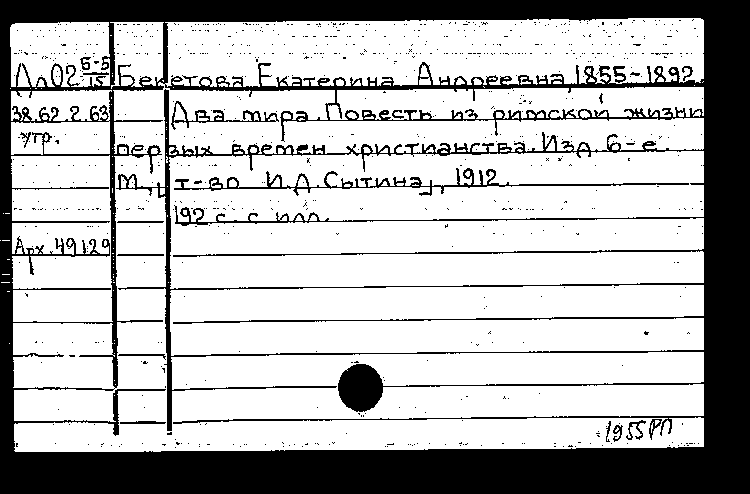 Дл02 5-5/15 Бекетова, Екатерина Андреевна, 1855-1892.
38.62.2.63 Два мира. Повесть из римской жизни
утр. первых времен христианства. Изд. 6-е.
М., [т-во И.Д. Сытина], 1912.
192 с. с илл.
Арх. 49129
1955РП